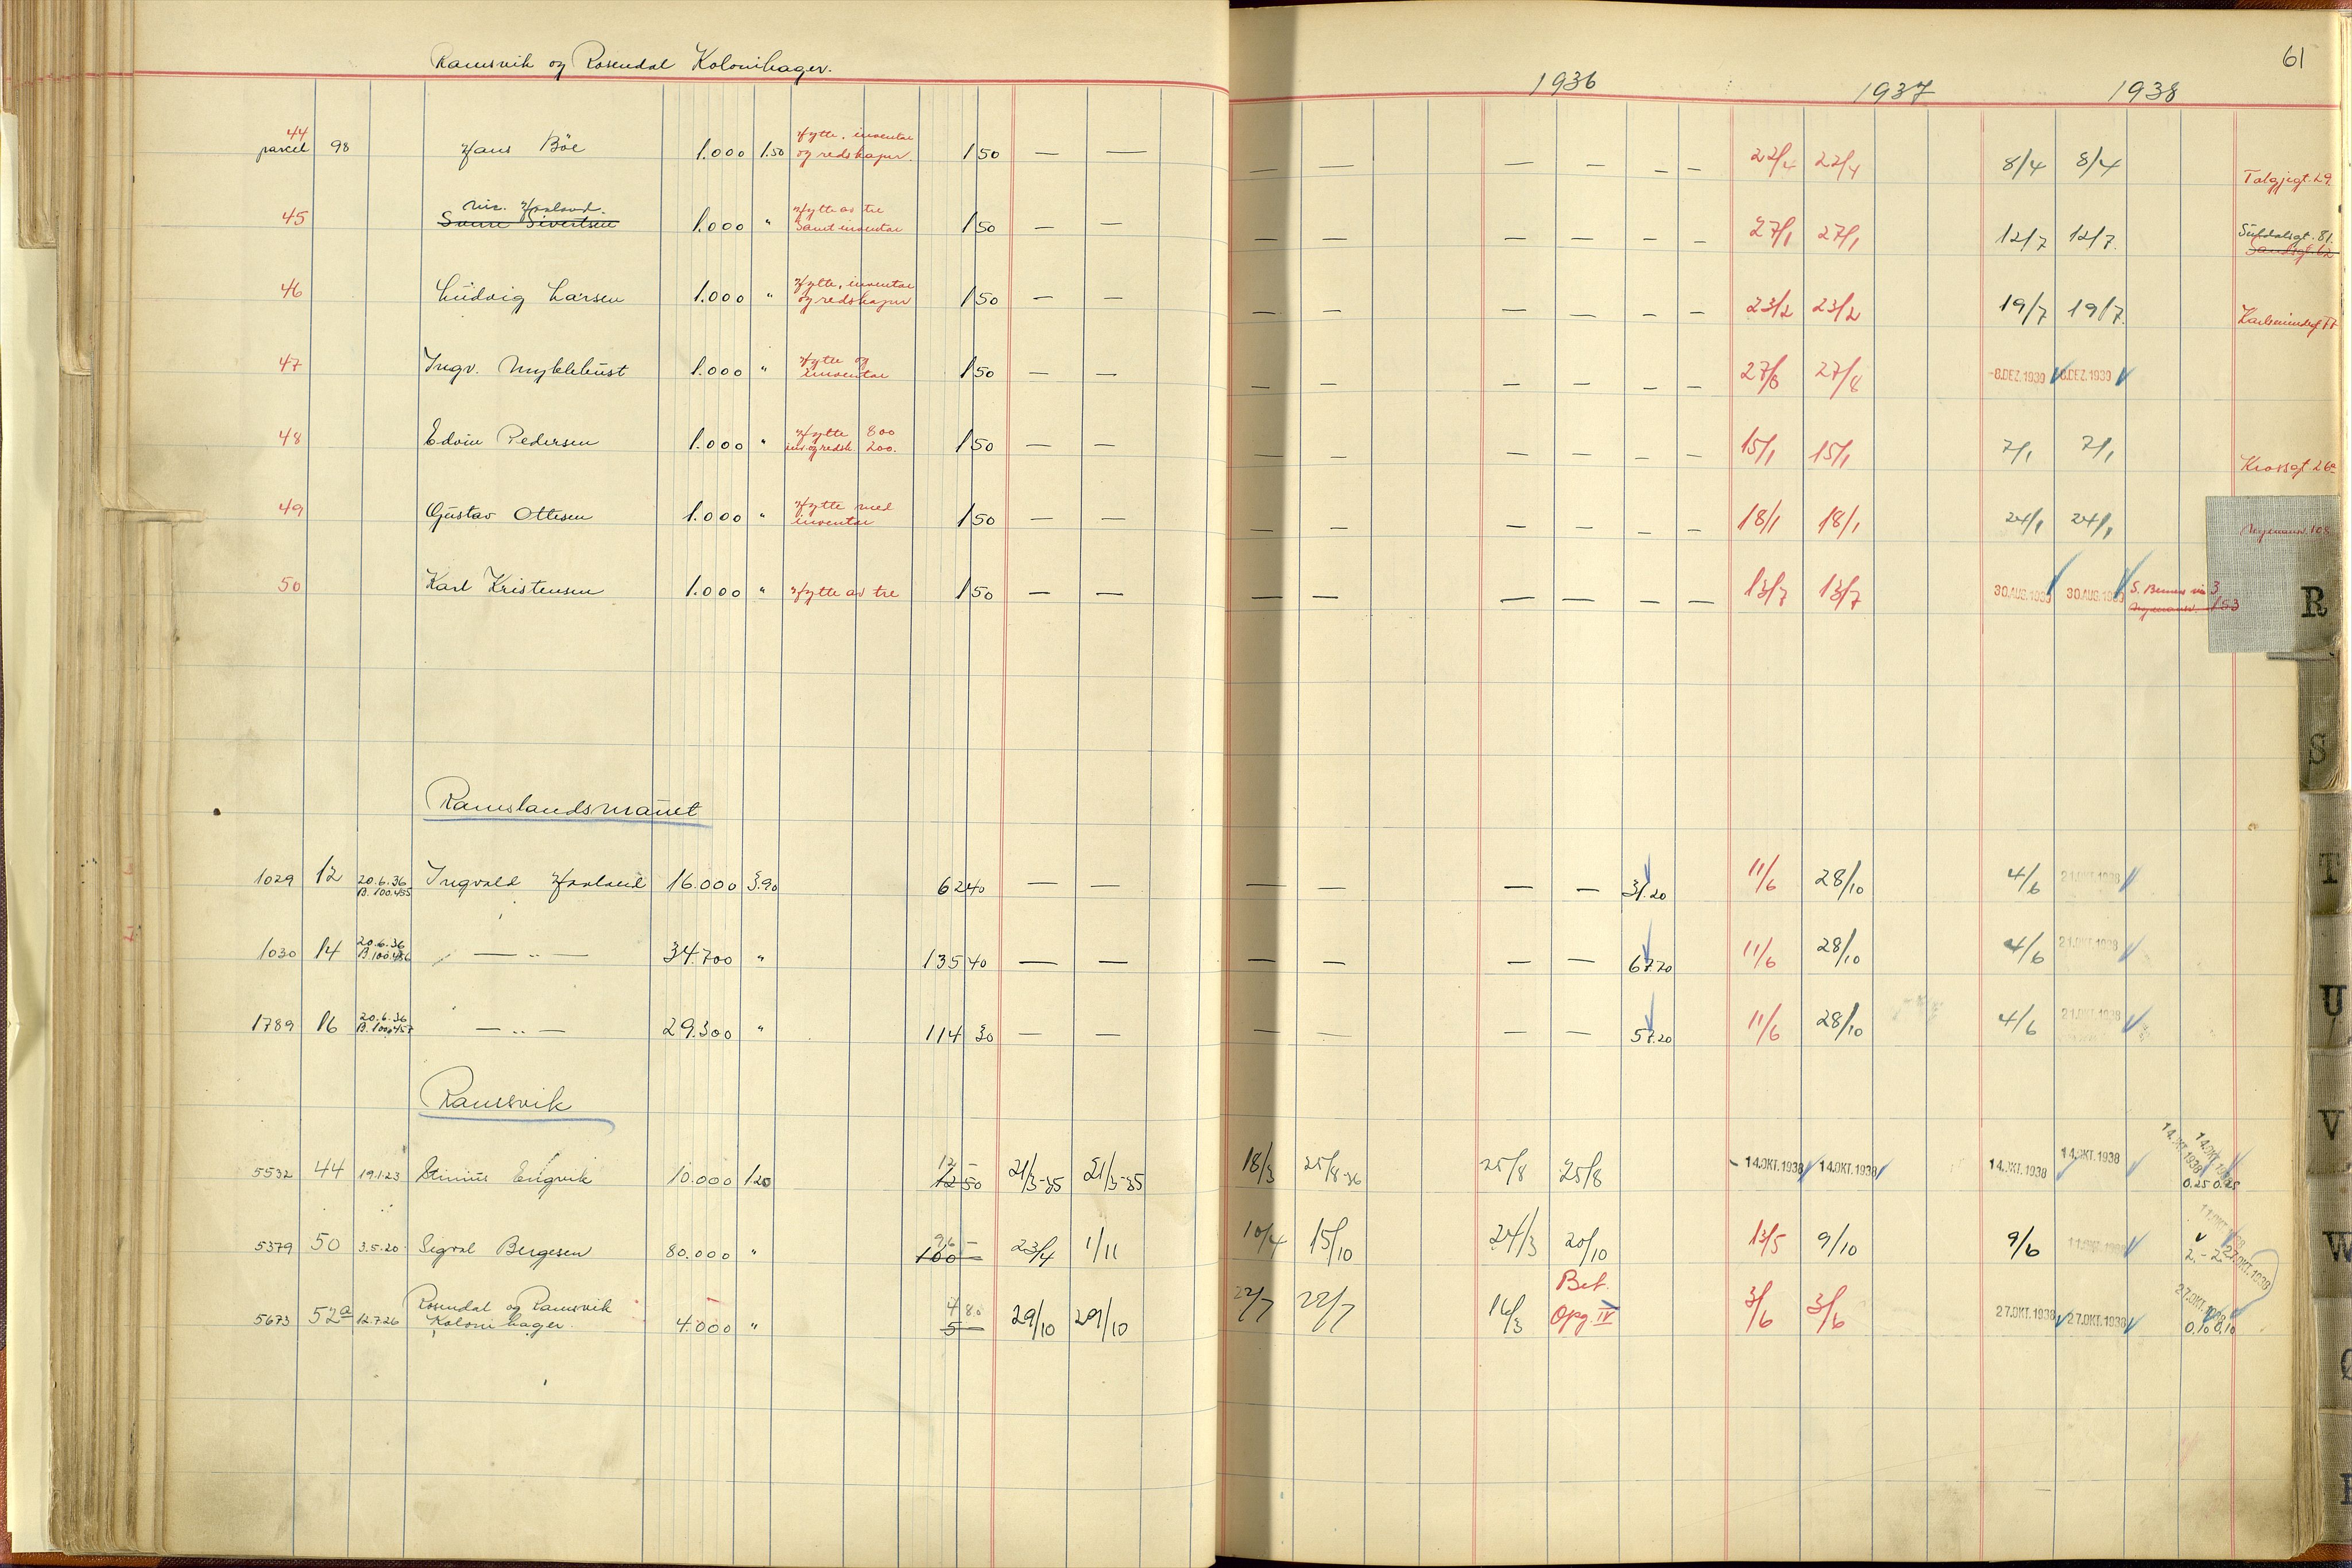 Ramsvik og Rosendal Kolonihager.
1936 1937 1938 61
44 parcel 98 Hans Böe 1.000 1.50 Hytte, inventar og redskaper. 1 50 — — — — — — — — 22/4 22/4 8/4 8/4 Talgjegt. 29.
45 Nic. Haaland. Sverre Sivertsen 1.000 " Hytte av tre Samt inventar 1 50 — — — — — — — — 27/1 27/1 12/7 12/7. 81. Sandsgt. 62
46 Ludvig Larsen 1.000 " Hytte, inventar og redskaper 1 50 — — — — — — — — 23/2 23/2 19/7 19/7.
47 Ingv. Myklebust 1.000 " Hytte og inventar 1 50 — — — — — — — — 27/8 27/8 -8.DEZ.1939 -8.DEZ.1939
48 Edvin Pedersen 1.000 " Hytte 800 inv. og redsk. 200. 1 50 — — — — — — — — 15/1 15/1 7/1 7/1 Krossgt. 26a
49 Gustav Ottesen 1.000 " Hytte med inventar 1 50 — — — — — — — — 18/1 18/1 24/1 24/1 Nymansv. 108
50 Karl Kristensen 1.000 " Hytte av tre 1 50 — — — — — — — — 13/7 13/7 30.AUG.1939 30.AUG.1939 3 153
Ramslandsmarket
1029 12 20.6.36 B. 100.455 Ingvald Haaland 16.000 3.90 62 40 — — — — — — 31.20 11/6 28/10 4/6 21.OKT.1938
1030 14 20.6.36 B 100.456 — " — 34.700 " 135 40 — — — — — — 67.70 11/6 28/10 4/6 21.OKT.1938
1789 16 20.6.36 B. 100.457 — " — 29.300 " 114 30 — — — — — — 57.20 11/6 28/10 4/6 21.OKT.1938
Ramsvik
5532 44 19.1.23 Engvik 10.000 1.20 12 — 12 50 21/3-35 21/3-35 18/3 25/8-36 25/8 25/8 14.OKT.1938 14.OKT.1938 14.OKT.1938 14.OKT.1938 14.OKT.1938 14.OKT.1938 0.25 0.25
5379 50 3.5.20 Sigval Bergesen 80.000 " 96 — 100 — 23/4 1/11 10/4 15/10 24/3 20/10 13/5 9/10 9/6 11.OKT.1938 11.OKT.1938 2.- 2.- 27.OKT.1938
5673 52a 12.7.26 Rosendal og Ramsvik Kolonihager. 4.000 " 4 80 5 — 29/10 29/10 22/7 22/7 16/3 Bet. Opg. IV 3/6 3/6 27.OKT.1938 27.OKT.1938 27.OKT.1938 0,10 0,10
R
S
T
U
V
W